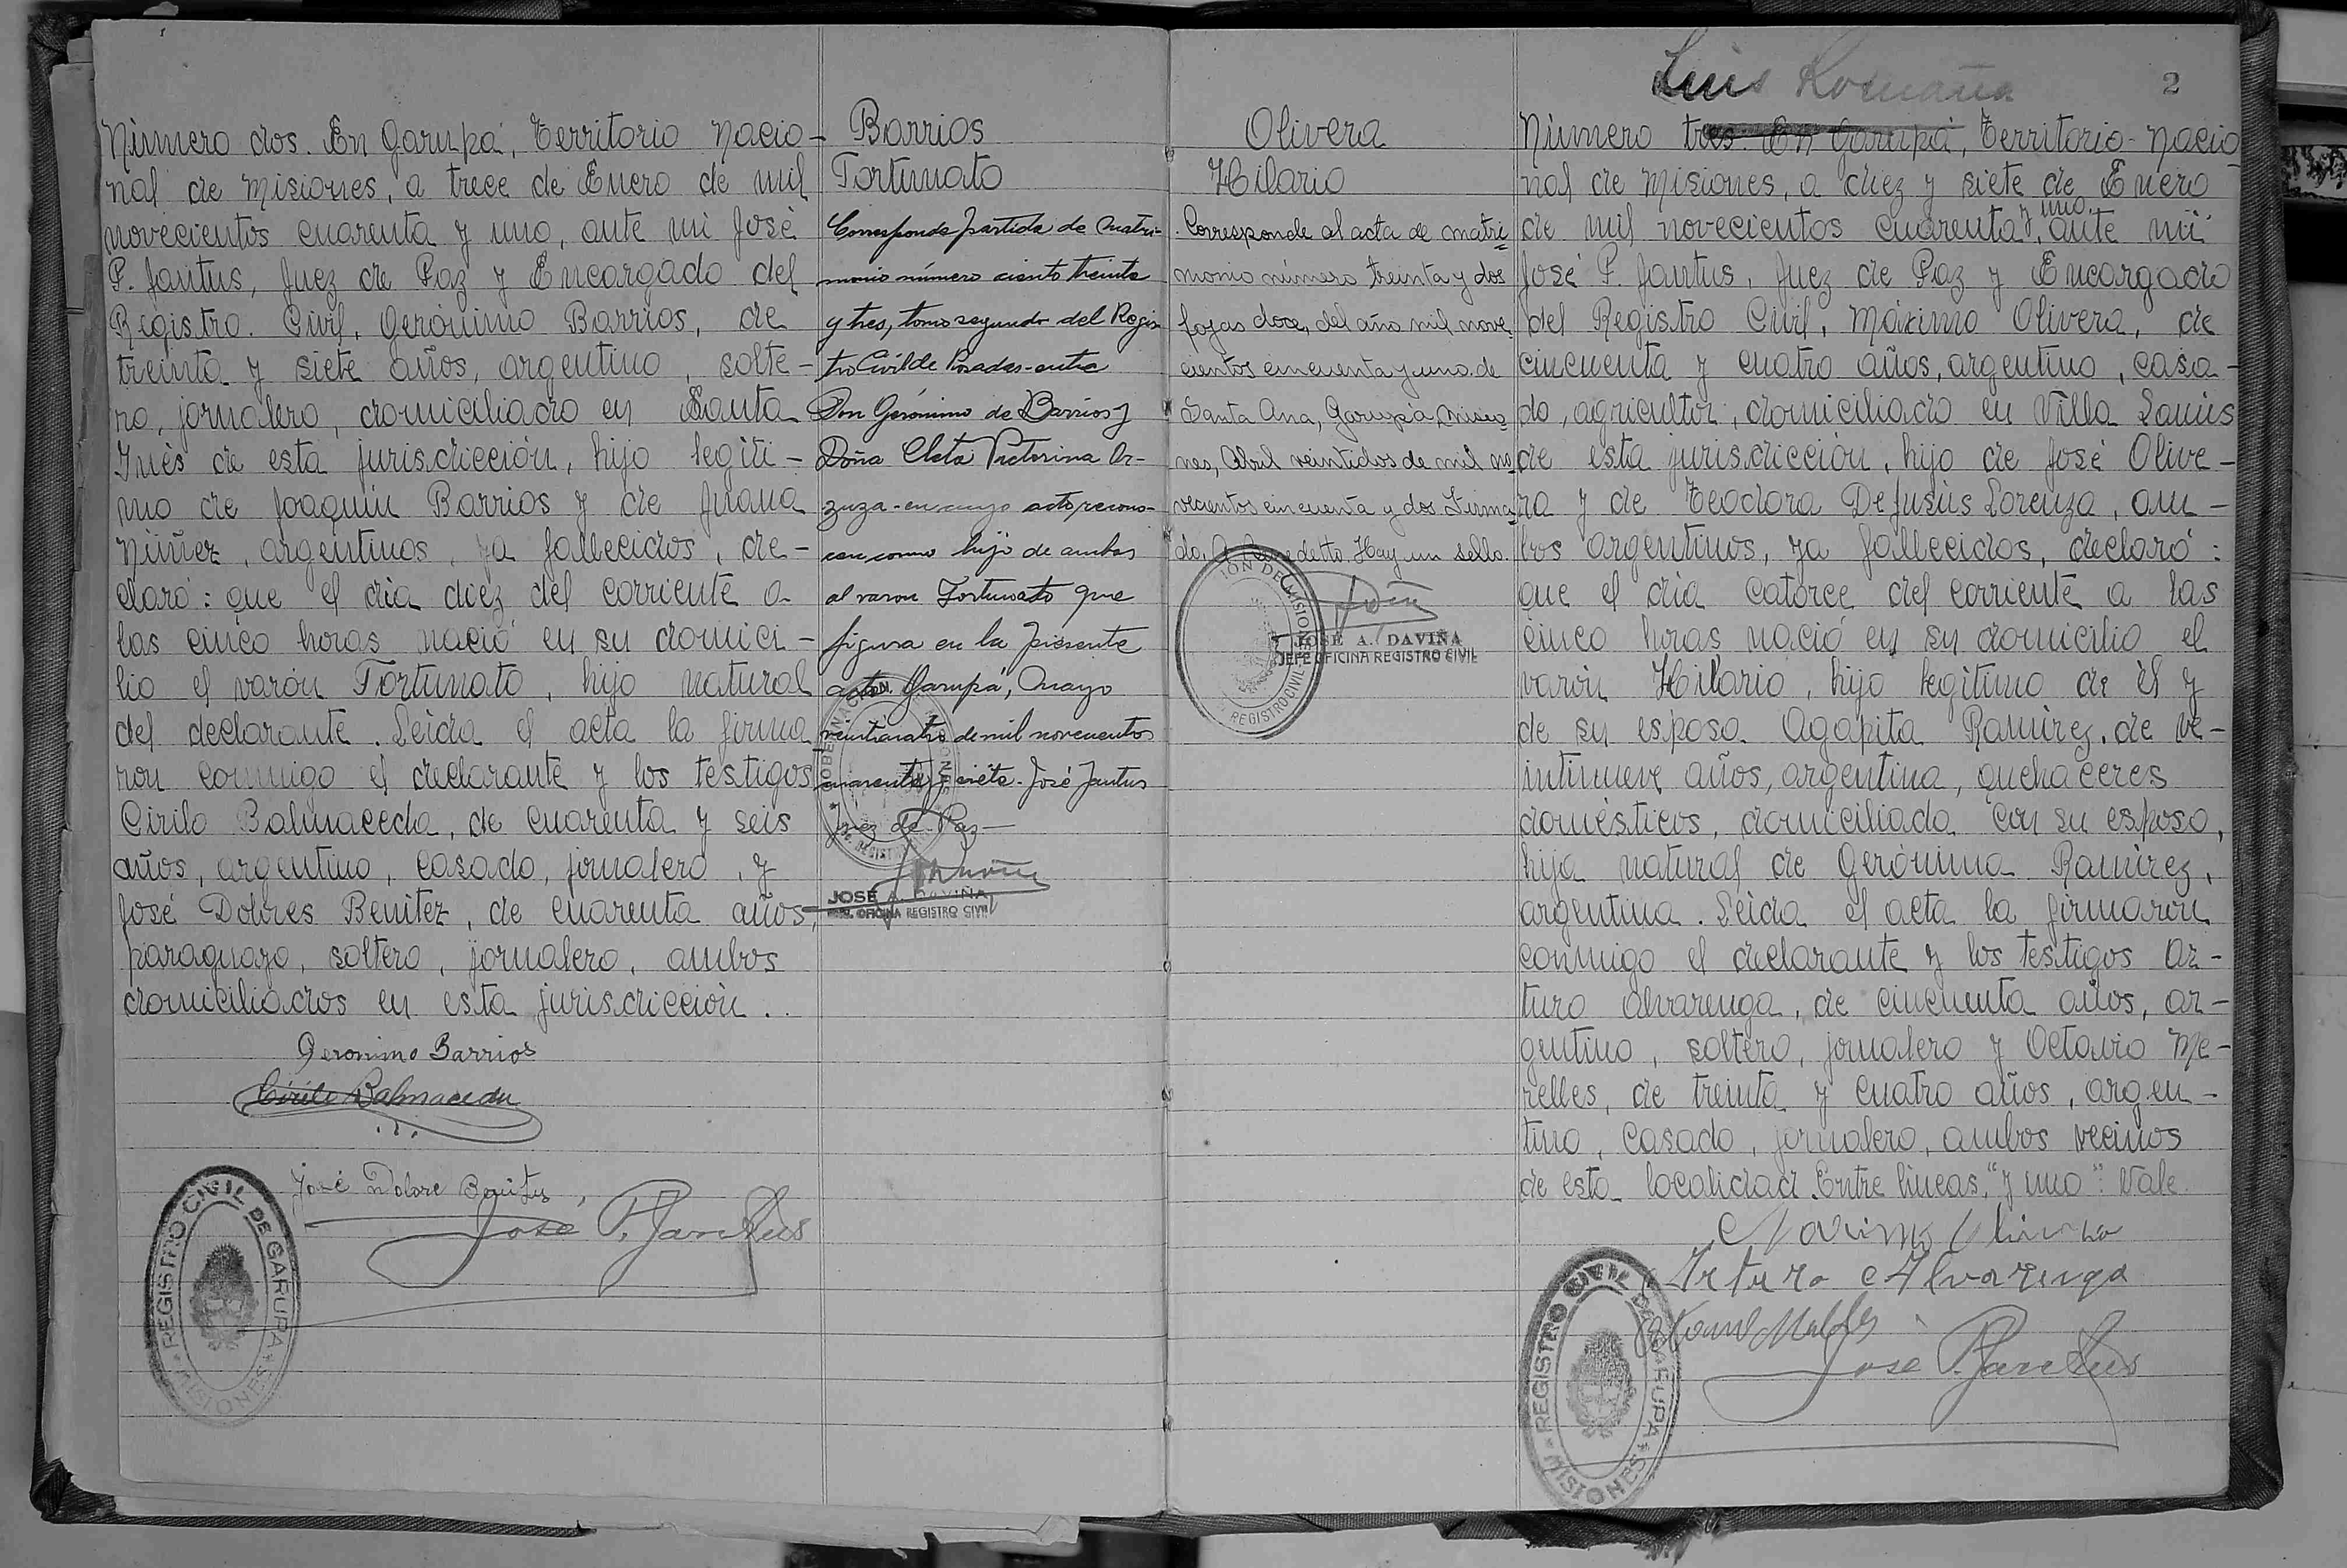 Número dos. En Garupá, Territorio Nacio-
nal de Misiones, a trece de Enero de mil
novecientos cuarenta y uno, ante mi José
P. Jantus, Juez de Paz y Encargado del
Registro Civil, Gerónimo Barrios, de
treinta y siete años, argentino, solte-
ro, jornalero, domiciliado en Santa
Inés de esta jurisdicción, hijo legíti-
mo de Joaquín Barrios y de Juana
Núñez, argentinos, ya fallecidos, de-
claró: que el día diez del corriente a
las cinco horas nació en su domici-
lio el varón Fortunato, hijo natural
del declarante. Leída el acta la firma
ron conmigo el declarante y los testigos
Cirilo Balmaceda, de cuarenta y seis
años, argentino, casado, jornalero, y
José Dolores Benítez, de cuarenta años,
paraguayo, soltero, jornalero, ambos
domiciliados en esta jurisdicción..
Geronimo Barrios
Cirilo Balmaceda
José Dolore Benites
José P. Jantus
REGISTRO CIVIL DE GARUPA
MISIONES
Barrios
Fortunato
Corresponde partida de Matri-
monio número ciento treinta
y tres, tomo segundo del Regis
tro Civil de Posadas-entre
Don Gerónimo de Barrios y
Doña Cleta Victorina Or-
zuza-en cuyo acto recono-
cen como hijo de ambos
al varon Fortunato que
figura en la presente
acta. Garupá, Mayo
veinticuatro de mil novecientos
cuarenta y siete. José Jantus
Juez de Paz-
JOSE A. DAVIÑA
OFICINA REGISTRO CIVIL
Olivera
Hilario
Corresponde al acta de matri
monio número treinta y dos
fojas doce, del año mil nove
cientos cincuenta y uno. de
Santa Ana, Garupá, Misio
nes, Abril veintidos de mil no
vecientos cincuenta y dos Firma
do. Hay un sello.
JOSE A. DAVIÑA
JEFE OFICINA REGISTRO CIVIL
REGISTRO CIVIL
Luis Romaña
2
Número tres. En Garupá, Territorio Nacio
nal de Misiones, a diez y siete de Enero
y uno.
de mil novecientos cuarenta, ante mi
José P. Jantus, Juez de Paz y Encargado
del Registro Civil, Máximo Olivera, de
cincuenta y cuatro años, argentino, casa-
do, agricultor, domiciliado en Villa Lanús
de esta jurisdicción, hijo de José Olive-
ra y de Teodora De Jusús Lorenza, am-
bos argentinos, ya fallecidos, declaró:
que el día catorce del corriente a las
cinco horas nació en su domicilio el
varón Hilario, hijo legítimo de él y
de su esposa Agapita Ramírez, de ve-
intinueve años, argentina, quehaceres
domésticos, domiciliada con su esposo,
hija natural de Gerónima Ramírez,
argentina. Leída el acta la firmaron
conmigo el declarante y los testigos Ar-
turo Alvarenga, de cincuenta años, ar-
gentino, soltero, jornalero y Octavio Me-
relles, de treinta y cuatro años, argen-
tino, casado, jornalero, ambos vecinos
de esta localidad. Entre líneas, "y uno": Vale
Maximo Olivera
Arturo Alvarenga
José P. Jantus
REGISTRO CIVIL DE GARUPA
MISIONES